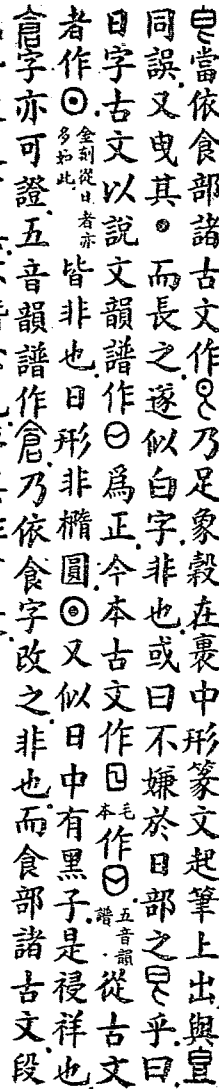 當依食部諸古文作乃足象穀在裹中形篆文起筆上出與
同誤又曳其•而長之遂似白字非也或曰不嫌於日部之乎曰
日字古文以說文韻譜作⊖為正今本古文作毛本作五音韻譜從古文
者作⊙金刻從日者亦多如此皆非也日形非橢圓⊙又似日中有黑子是祲祥也
倉字亦可證五音韻譜作倉乃依食字改之非也而食部諸古文段